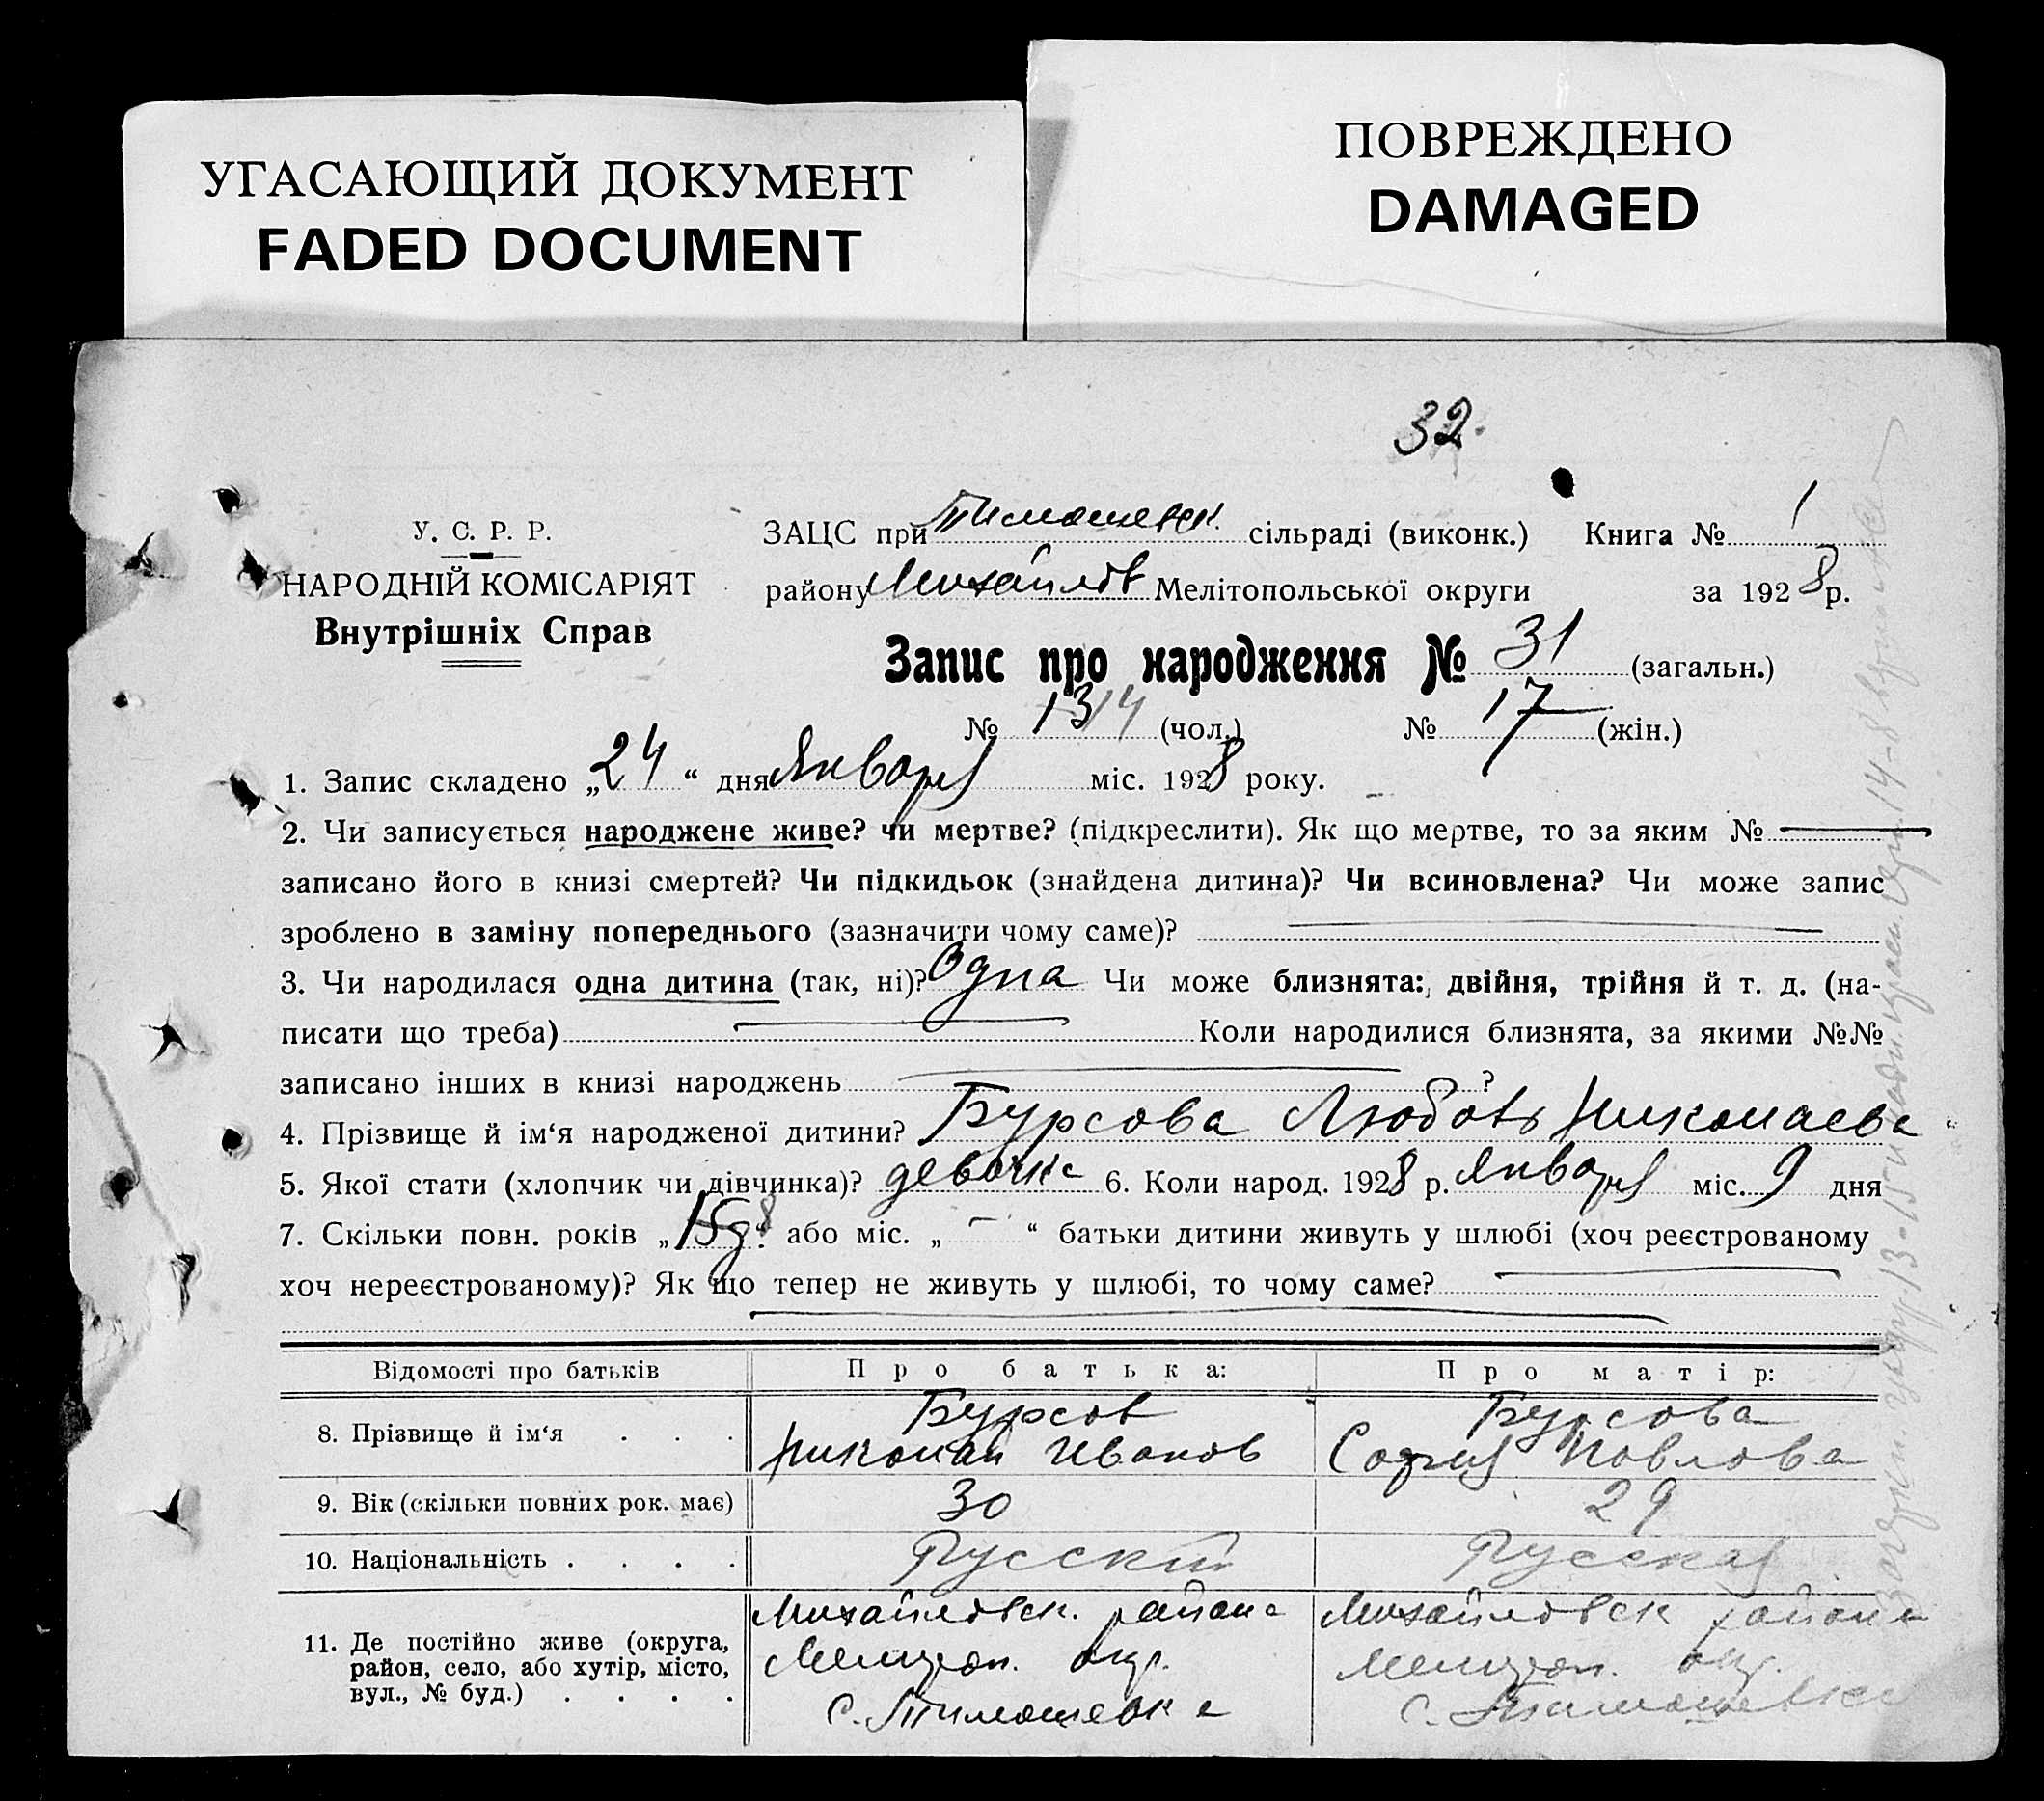 УГАСАЮЩИЙ ДОКУМЕНТ
FADED DOCUMENT
ПОВРЕЖДЕНО
DAMAGED
32.
У. С. Р. Р.
НАРОДНІЙ КОМІСАРІЯТ
Внутрішніх Справ
ЗАЦС при Тимошевск. сільраді (виконк.) Книга № 1
району Михайлов Мелітопольської округи за 1928 р.
Запис про народження № 31 (загальн.)
№ 13 14 (чол.) № 17 (жін.)
1. Запис складено „24“ дня Января міс. 1928 року.
2. Чи записується народжене живе? чи мертве? (підкреслити). Як що мертве, то за яким №
записано його в книзі смертей? Чи підкидьок (знайдена дитина)? Чи всиновлена? Чи може запис
зроблено в заміну попереднього (зазначити чому саме)?
3. Чи народилася одна дитина (так, ні)? Одна Чи може близнята: двійня, трійня й т. д. (на-
писати що треба) Коли народилися близнята, за якими №№
записано інших в книзі народжень ?
4. Прізвище й ім‘я народженої дитини? Бурсова Любовь Николаева
5. Якої стати (хлопчик чи дівчинка)? девочка 6. Коли народ. 1928 р. Января міс. 9 дня
7. Скільки повн. років „ “ або міс. „ — “ батьки дитини живуть у шлюбі (хоч реєстрованому
хоч нереєстрованому)? Як що тепер не живуть у шлюбі, то чому саме?
Відомості про батьків Про батька: Про матір:
8. Прізвище й ім‘я . . . Бурсов Николай Иванов Бурсова София Павлова
9. Вік (скільки повних рок. має) 30 29
10. Національність . . . . Русский Русская
11. Де постійно живе (округа,
район, село, або хутір, місто,
вул., № буд.) . . . .
Михайловск. района
Мелитоп. окр.
с. Тимошевка
Михайловск района
Мелитоп. окр.
с. Тимошевка